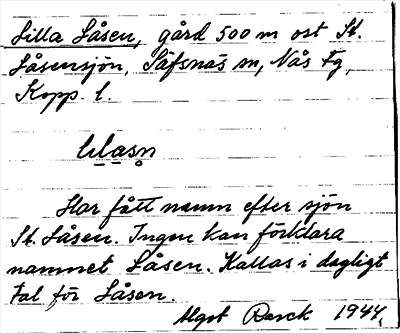 Lilla Låsen, gård 500 m ost St.
Låsensjön, Säfsnäs sn, Nås tg,
Kopp. l.
Har fått namn efter sjön
St. Låsen. Ingen kan förklara
namnet Låsen. Kallas i dagligt
tal för Låsen.
Algot 1944.